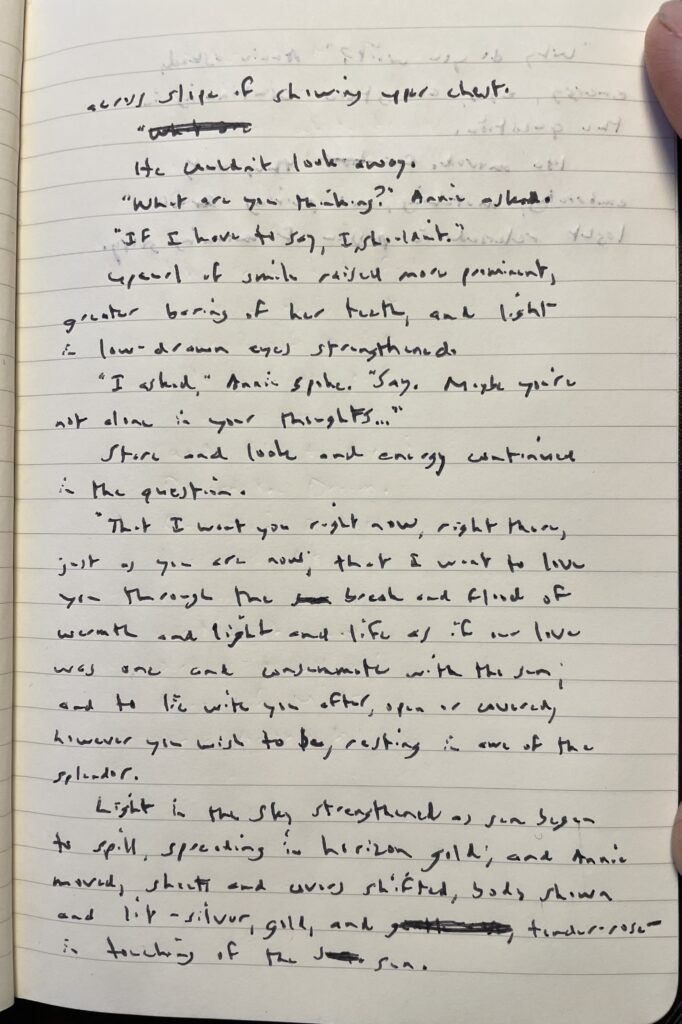 across slip of showing upper chest.
"What are
He couldn't look away.
"What are you thinking?" Annie asked.
"If I have to say, I shouldn't."
Upcurl of smile raised more prominent,
greater baring of her teeth, and light
in low-drawn eyes strengthened.
"I asked," Annie spoke. "Say. Maybe you're
not alone in your thoughts..."
Stare and look and energy continued
in the question.
"That I want you right now, right there,
just as you are now; that I want to love
you through the break and flood of
warmth and light and life as if our love
was one and consummate with the sun;
and to lie with you after, open or covered,
however you wish to be, resting in awe of the
splendor.
Light in the sky strengthened as sun began
to spill, spreading in horizon gold; and Annie
moved, sheets and covers shifted, body shown
and lit - silver, gold, and , tender-rose
in touching of the sun.